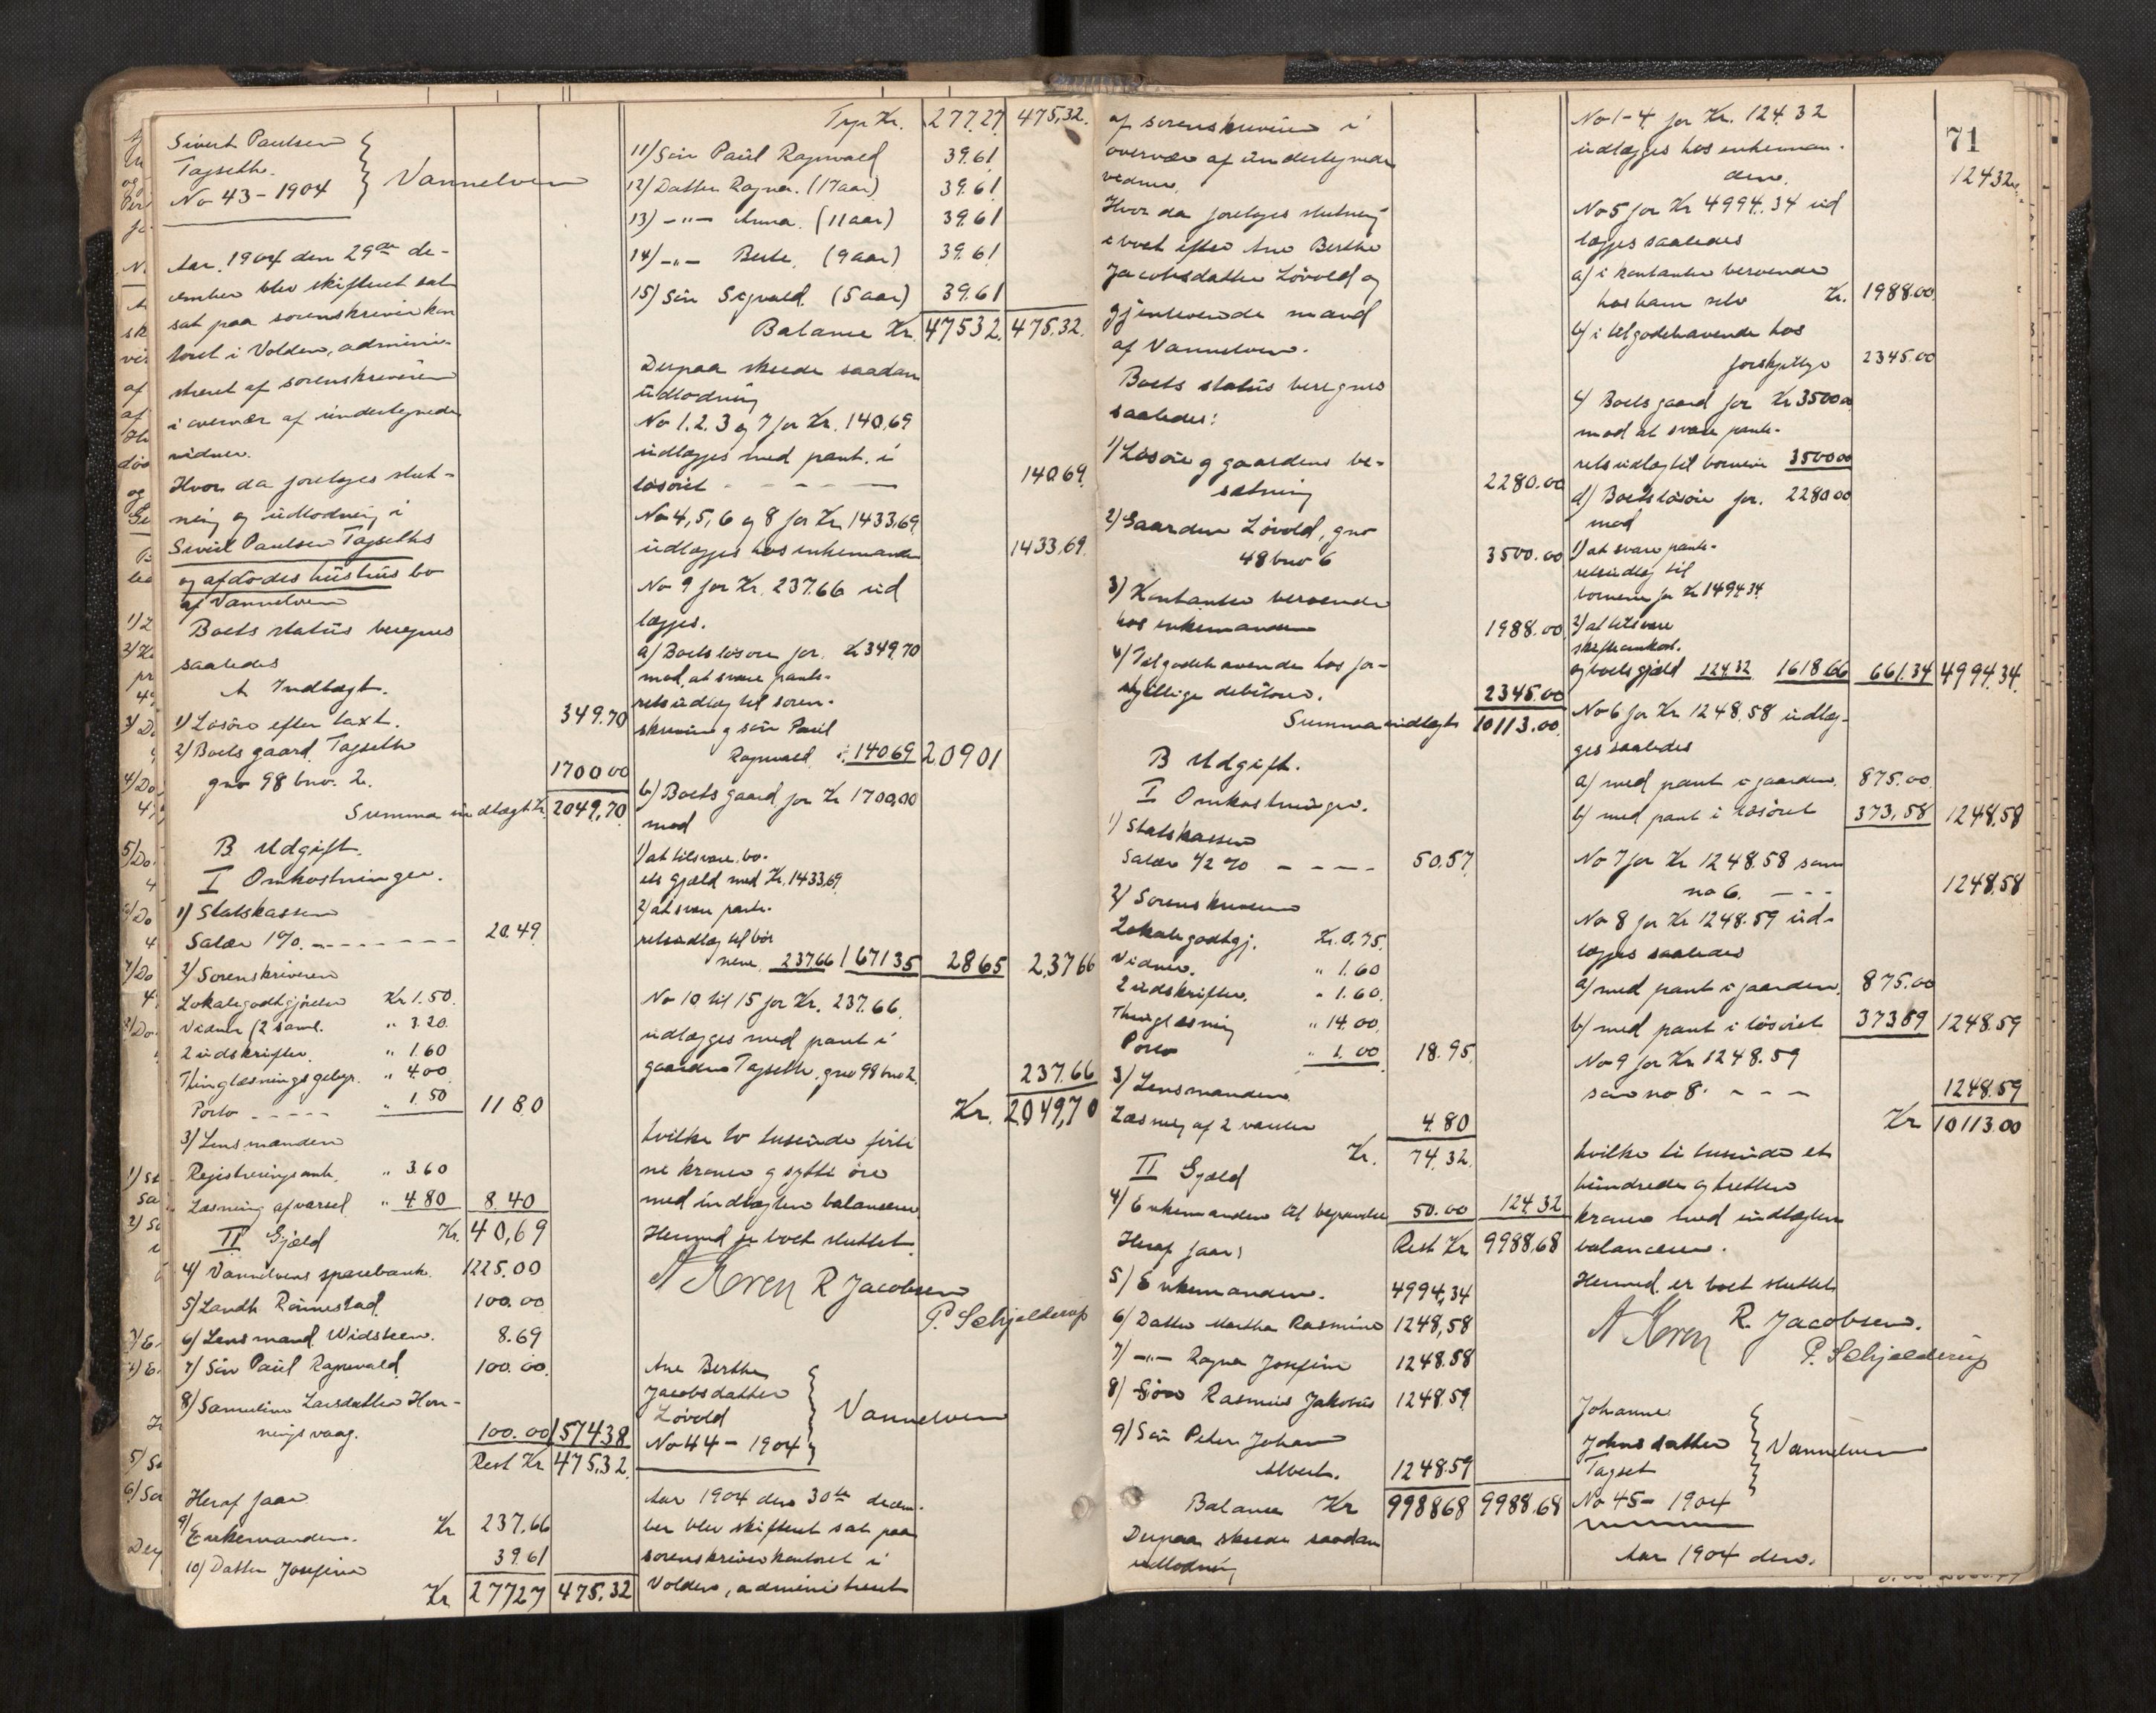 Sivert Paulsen
Tagseth.
No 43 - 1904
Vannelven
Aar 1904 den 29de de-
cember blev skifteret sat
sat paa sorenskriverkon
toret i Volden, admini-
streret af sorenskriveren
i overvær af undertegnede
vidner.
Hvor da foretoges slut-
ning og udlodning i
Sivert Paulsen Tagseths
og afdødes hustrus bo
af Vannelven
Boets status beregnes
saaledes
A Indtægt.
1) Løsøre efter taxt. 349.70
2) Boets gaard Tagseth
gno 98 bno. 2. 1700 00
Summa indtægt Kr. 2049,70
B. Udgift.
I Omkostninger.
1) Statskassen
Salær 1%. - - - - - - 20.49
2) Sorenskriveren
Lokalegodtgjørelse Kr 1.50.
Vidner (2 saml. " 3.20.
2 udskrifter. " 1.60
Thinglæsningsgebyr. " 4.00
Porto - - - - - " 1.50 11 80
3) Lensmanden
Registreringsamb. " 3.60
Læsning af varsel " 4.80 8.40
II Gjæld Kr. 40,69
4) Vannelvens sparebank. 1225.00
5) Landh. Rönnestad. 100.00
6) Lensmand Widsteen. 8.69
7) Sön Paul Ragnvald. 100.00
8) Samuline Larsdatter Hon-
ningsvaag. 100.00 1574.38
Rest Kr 475.32.
Heraf faar
9) Enkemanden. Kr 237.66
10) Datter Josefine 39.61
Kr 277 27 475.32
Trp Kr. 277.27. 475,32.
11) Sön Paul Ragnvald 39.61
12) Datter Ragna. (17 aar) 39.61
13) -"- Anna. (11 aar) 39.61
14) -"- Berte. (9 aar) 39.61
15) Sön Sigvald. (5 aar) 39.61
Balance Kr. 475 32. 475.32.
Derpaa skeede saadan
udlodning
No 1. 2. 3 og 7 for Kr. 140.69
udlægges med pant i
løsöret - - - - - 140 69.
No 4, 5, 6 og 8 for Kr 1433,69
udlægges hos enkemanden 1433.69.
No 9 for Kr. 237.66 ud
lægges.
a) Boets løsøre for. Kr 349.70
mod at svare pante-
retsudlæg til soren-
skriveren og sön Paul
Ragnvald 140 69 209 01
b) Boets gaard for Kr 1700,00
mod
1) at tilsvare bo-
ets gjæld med Kr. 1433,69.
2) at svare pante-
retsudlæg til bör
nene 237 66 1671 35 28 65 237 66
No 10 til 15 for Kr. 237.66.
udlægges med pant i
gaarden Tagseth. gno 98 bno 2. 237.66
Kr. 2049,70
hvilke to tusinde firti
ni kroner og sytti öre
med indtægten balancerer.
Hermed er boet sluttet.
A Koren R Jacobsen
P. Schjelderup
Ane Berthe
Jacobsdatter
Løvold
No 44 - 1904
Vannelven
Aar 1904 den 30te decem-
ber blev skifteret sat paa
sorenskriverkontoret i
Volden, administreret
71
af sorenskriveren i
overvær af undertegnede
vidner.
Hvor da foretoges slutning
i boet efter Ane Berthe
Jacobsdatter Løvold og
gjenlevende mand
af Vannelven.
Boets status beregnes
saaledes:
1) Løsøre og gaardens be-
sætning 2280.00
2) Gaarden Løvold, gno
48 bno 6 3500.00
3) Kontanter beroende
hos enkemanden 1988.00
4) Tilgodehavende hos for-
skjellige debitorer. 2345.00
Summa indtægt 10113.00
B Udgift.
I Omkostninger.
1) Statskassen
Salær 1/2 % - - - - 50.57
2) Sorenskriveren
Lokalegodtgj. Kr. 0.75.
Vidner. " 1.60
2 udskrifter. " 1.60.
Thinglæsning " 14.00.
Porto " 1.00 18.95.
3) Lensmanden
Læsning af 2 varsler 4.80
Kr. 74.32.
II Gjæld
4) Enkemanden til begravelse 50.00 124.32
Rest Kr 9988.68
Heraf faar:
5) Enkemanden. 4994,34
6) Datter Martha Rasmine 1248,58
7) -"- Ragna Josefine 1248.58
8) Søn Rasmus Jakobus 1248.59
9) Sön Peter Johan
Albert. 1248.59
Balance Kr 9988 68 9988.68
Derpaa skeede saadan
udlodning
No 1-4 for Kr. 124.32
udlægges hos enkeman-
den. 124 32
No 5 for Kr 4994.34 ud
lægges saaledes
a) i kontanter beroende
hos ham selv Kr. 1988.00
b) i tilgodehavende hos
forskjellige 2345.00
c) Boets gaard for Kr 3500 00
mod at svare pante-
retsudlæg til børnene 3500 00
d) Boets løsøre for. 2280 00
mod
1) at svare pante-
retsudlæg til
børnene for Kr 1494 34.
2) at tilsvare
skifteomkost.
og boets gjæld 124.32 1618.66 661.34 4994.34.
No 6 for Kr 1248,58 udlæg-
ges saaledes
a) med pant i gaarden. 875.00
b) med pant i løsøret 373,58 1248.58
No 7 for Kr 1248.58 som
no 6. - - - 1248.58
No 8 for Kr 1248.59 ud-
lægges saaledes
a) med pant i gaarden. 875.00
b) med pant i løsöret 373 59 1248.59
No 9 for Kr 1248.59
som no 8. - - - 1248.59
Kr 10113.00
hvilke ti tusinde et
hundrede og tretten
kroner med indtægten
balancerer.
Hermed er boet sluttet
A Koren R. Jacobsen.
P. Schjelderup
Johanne
Johnsdatter
Tagset
No 45 - 1904
Vannelven
Aar 1904 den.